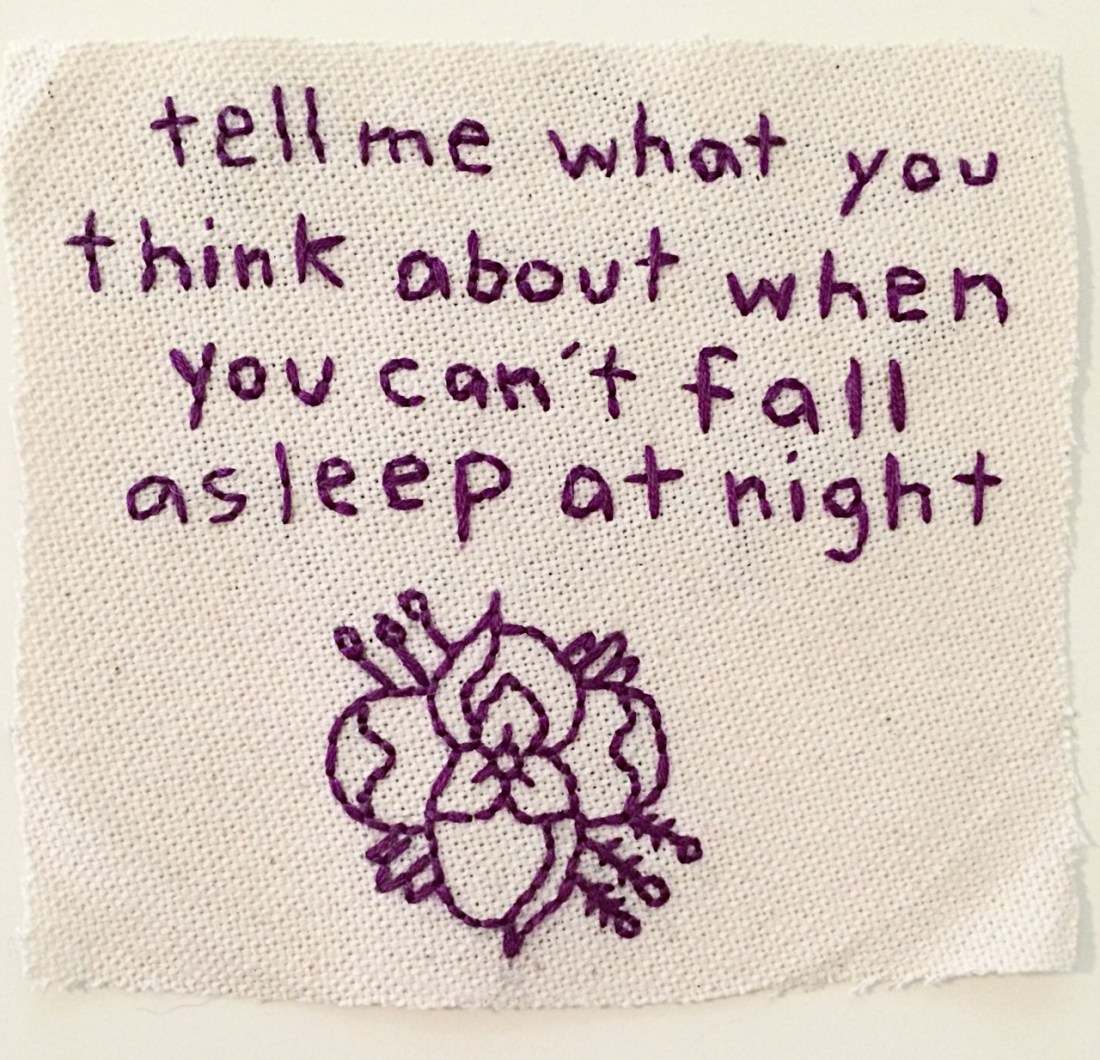 tell me what you
think about when
you can't fall
asleep at night